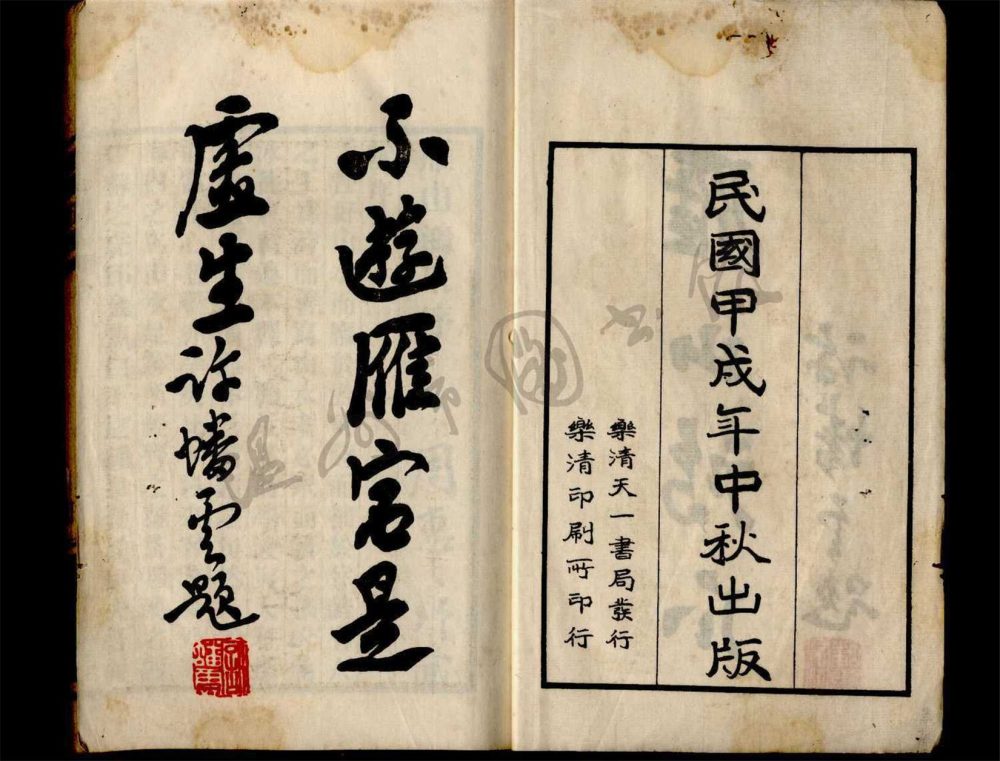 民國甲戌年中秋出版
樂清天一書局發行
樂清印刷所印行
不遊雁宕是
虛生許蟠雲題